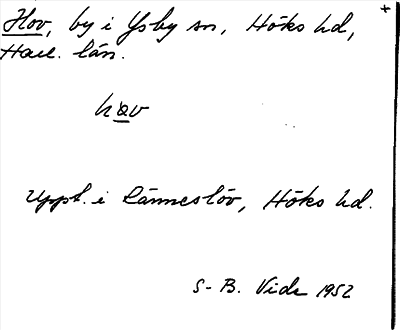 Hov, by i Ysby sn, Höks hd,
Hall. län.
hav
Uppt. i Ränneslöv, Höks hd.
S-B. Vide 1952